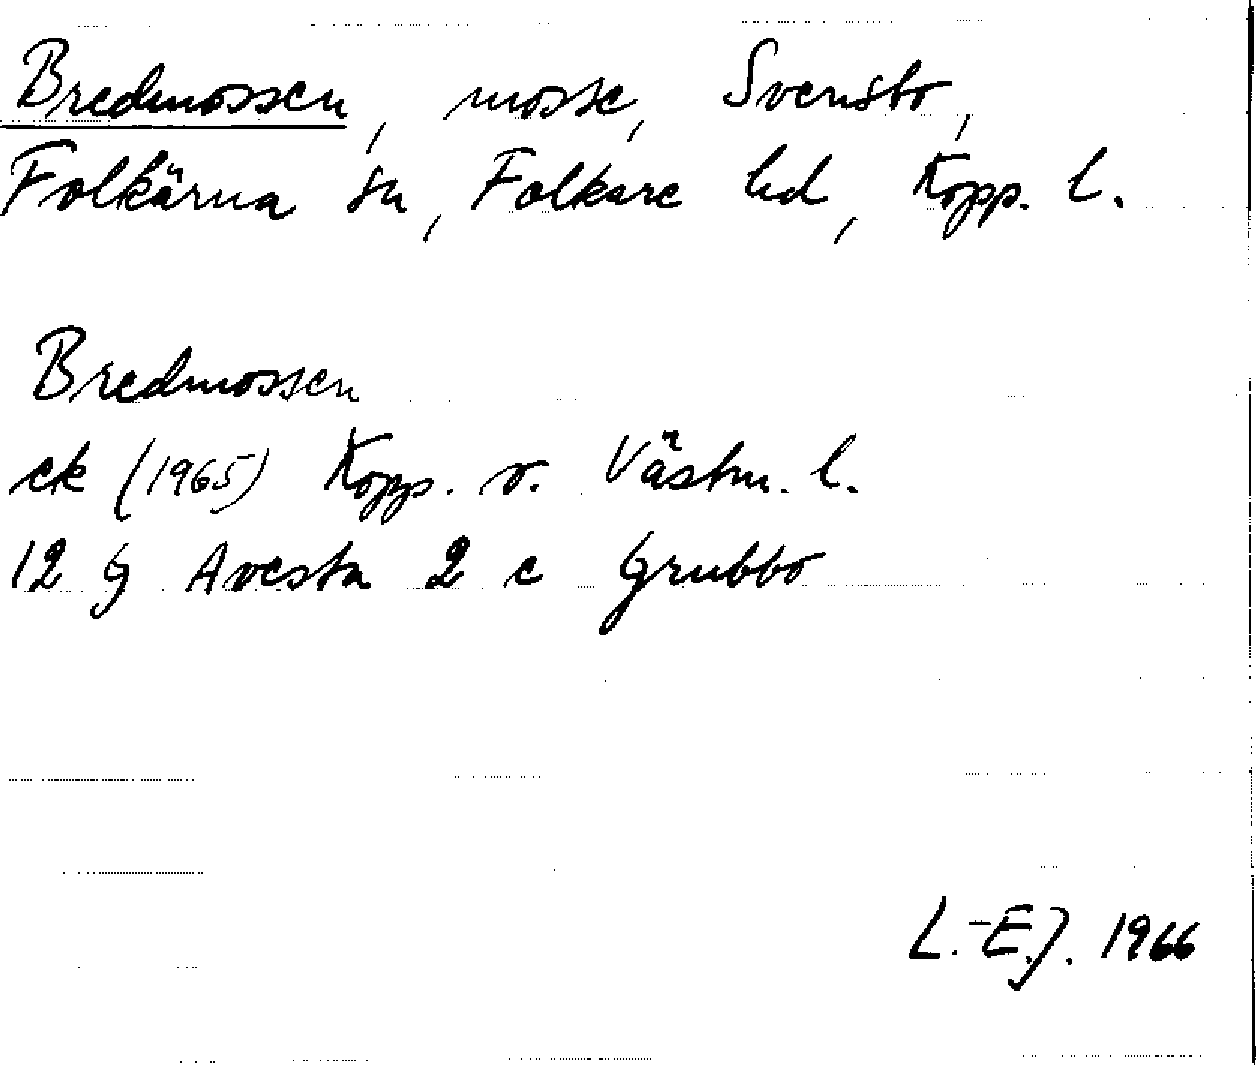 Bredmossen, mosse, Svensbo,
Folkärna sn, Folkare hd, Kopp. l.
Bredmossen
ek (1965) Kopp. o. Västm. l.
12 G Avesta 2 c Grubbo
L.-E.J. 1966